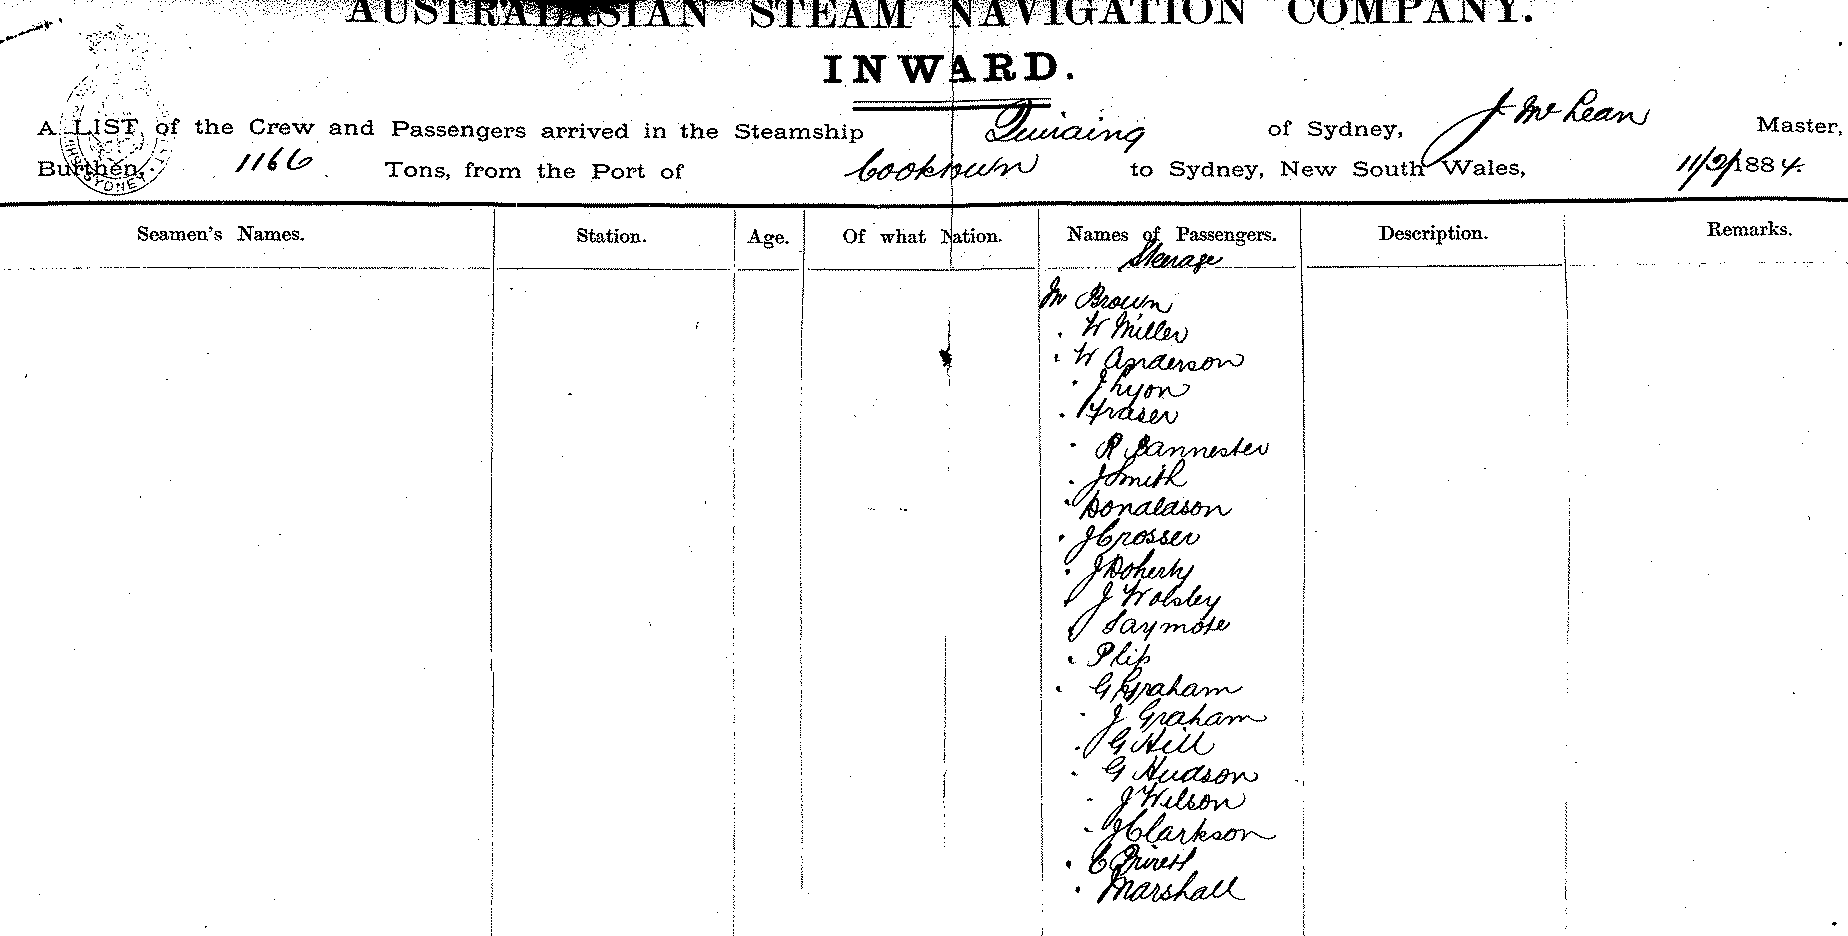 AUSTRALASIAN STEAM NAVIGATION COMPANY.
INWARD.
A LIST of the Crew and Passengers arrived in the Steamship Quiraing of Sydney, J McLean Master,
Burthen, 1166 Tons, from the Port of Cooktown to Sydney, New South Wales, 11/2/1884.
Seamen's Names. Station. Age. Of what Nation. Names of Passengers. Description. Remarks.
Steerage
Mr Brown
. W Miller
. W Anderson
. J Lyon
. Fraser
. R Bannester
. J Smith
. Donaldson
. J Crosser
. J Doherty
. J Wolsley
. Saymore
. P
. G Graham
. J Graham
. G Hill
. G Hudson
. J Wilson
. J Clarkson
. C
. Marshall